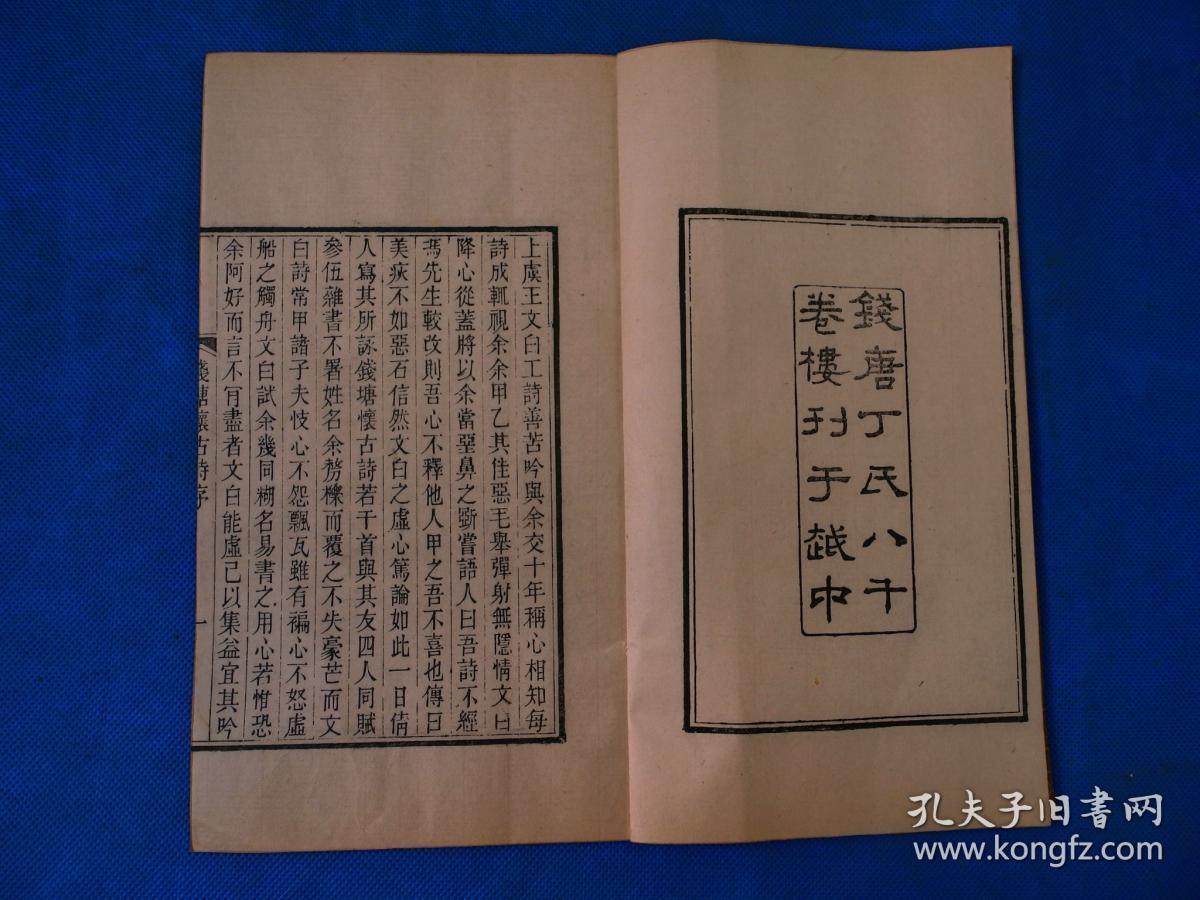 錢唐丁氏八千
卷樓刊于越中
上虞王文白工詩善苦吟與余交十年稱心相知每
詩成輒視余余甲乙其佳惡毛舉彈射無隱情文白
降心從蓋將以余當堊鼻之斲嘗語人曰吾詩不經
馮先生較改則吾心不釋他人甲之吾不喜也傳曰
美疢不如惡石信然文白之虛心篤論如此一日倩
人寫其所詠錢塘懷古詩若干首與其友四人同賦
參伍雜書不署姓名余勞櫟而覆之不失豪芒而文
白詩常甲諸子夫忮心不怨飄瓦雖有褊心不怒虛
船之觸舟文白試余幾同糊名易書之用心若惟恐
余阿好而言不肎盡者文白能虛己以集益宜其吟
錢塘懷古詩序
一
孔夫子旧书网
www.kongfz.com